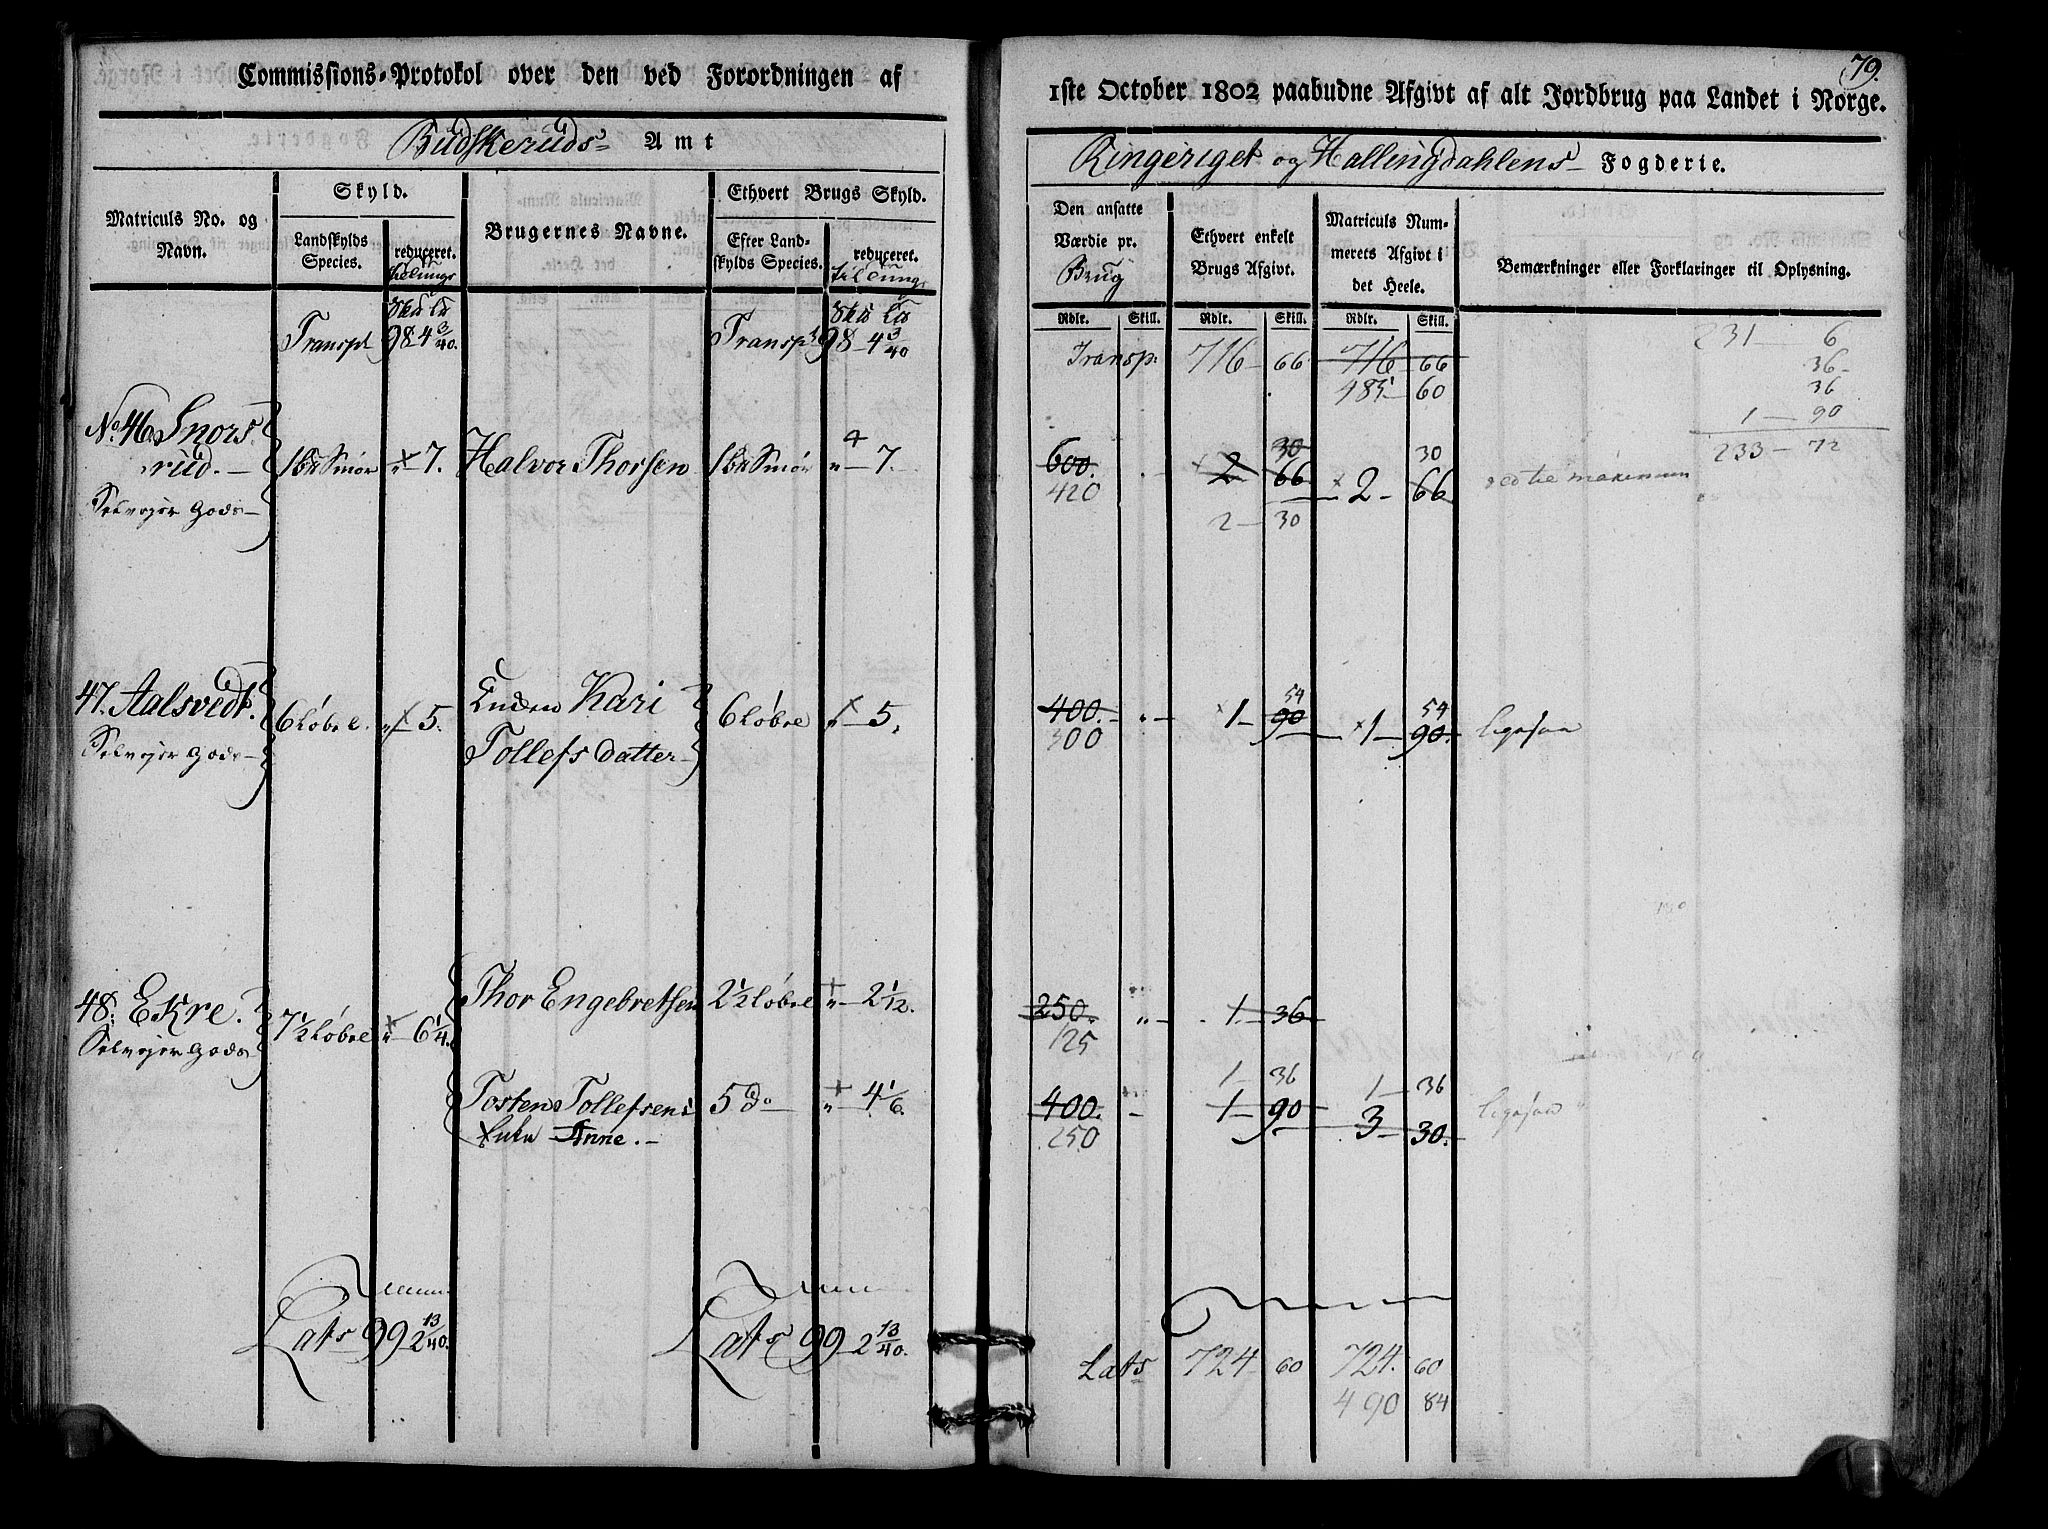 Commissions-Protokol over den ved Forordningen af
Budskeruds Amt
Matriculs No. og Navn.
Skyld.
Landskylds Species.
reduceret.
Brugernes Navne.
Ethvert Brugs Skyld.
Efter Landskylds Species.
reduceret.
Transpt 98 4 3/40.
Transpt 98 - 4 3/40
No. 46. Snorsrud. -
Selvejer Gods -
7.
Halvor Thorsen
7.
47. Aalsvedt.
Selvejer Gods -
6 Løbe
5.
Enken Kari
Tollefsdatter
6 Løbe
5.
48. Ekre.
Selvejer Gods
7 1/2 Løbe
6 1/4.
Thor Engebretsen
2 1/2 Løbe
2 1/12.
Tosten Tollefsens
Enke Anne. -
5 do
4 1/6.
Lats 99 2 13/40.
Lats 99 - 2 13/40.
79.
1ste October 1802 paabudne Afgivt af alt Jordbrug paa Landet i Norge.
Ringeriget og Hallingdahlens Fogderie.
Den ansatte Værdie pr. Brug
Ethvert enkelt Brugs Afgivt.
Matriculs Nummerets Afgivt i det Heele.
Bemærkninger eller Forklaringer til Oplysning.
Rdlr. Skill. Rdlr. Skill. Rdlr. Skill.
Transp. 716 - 66 716 - 66
485 - 60
231 - 6
36 -
36
1 - 90
233 - 72
600. 2 30 66 2 - 30 66
420
2 - 30
400. 1 - 54 90 1 - 54 90. Ligesaa
300
250. 1. - 36
125
1 - 36 1 - 36
400. 1 - 90 3 - 30. Ligesaa
250
Lats 724 60 724. 60
490 84